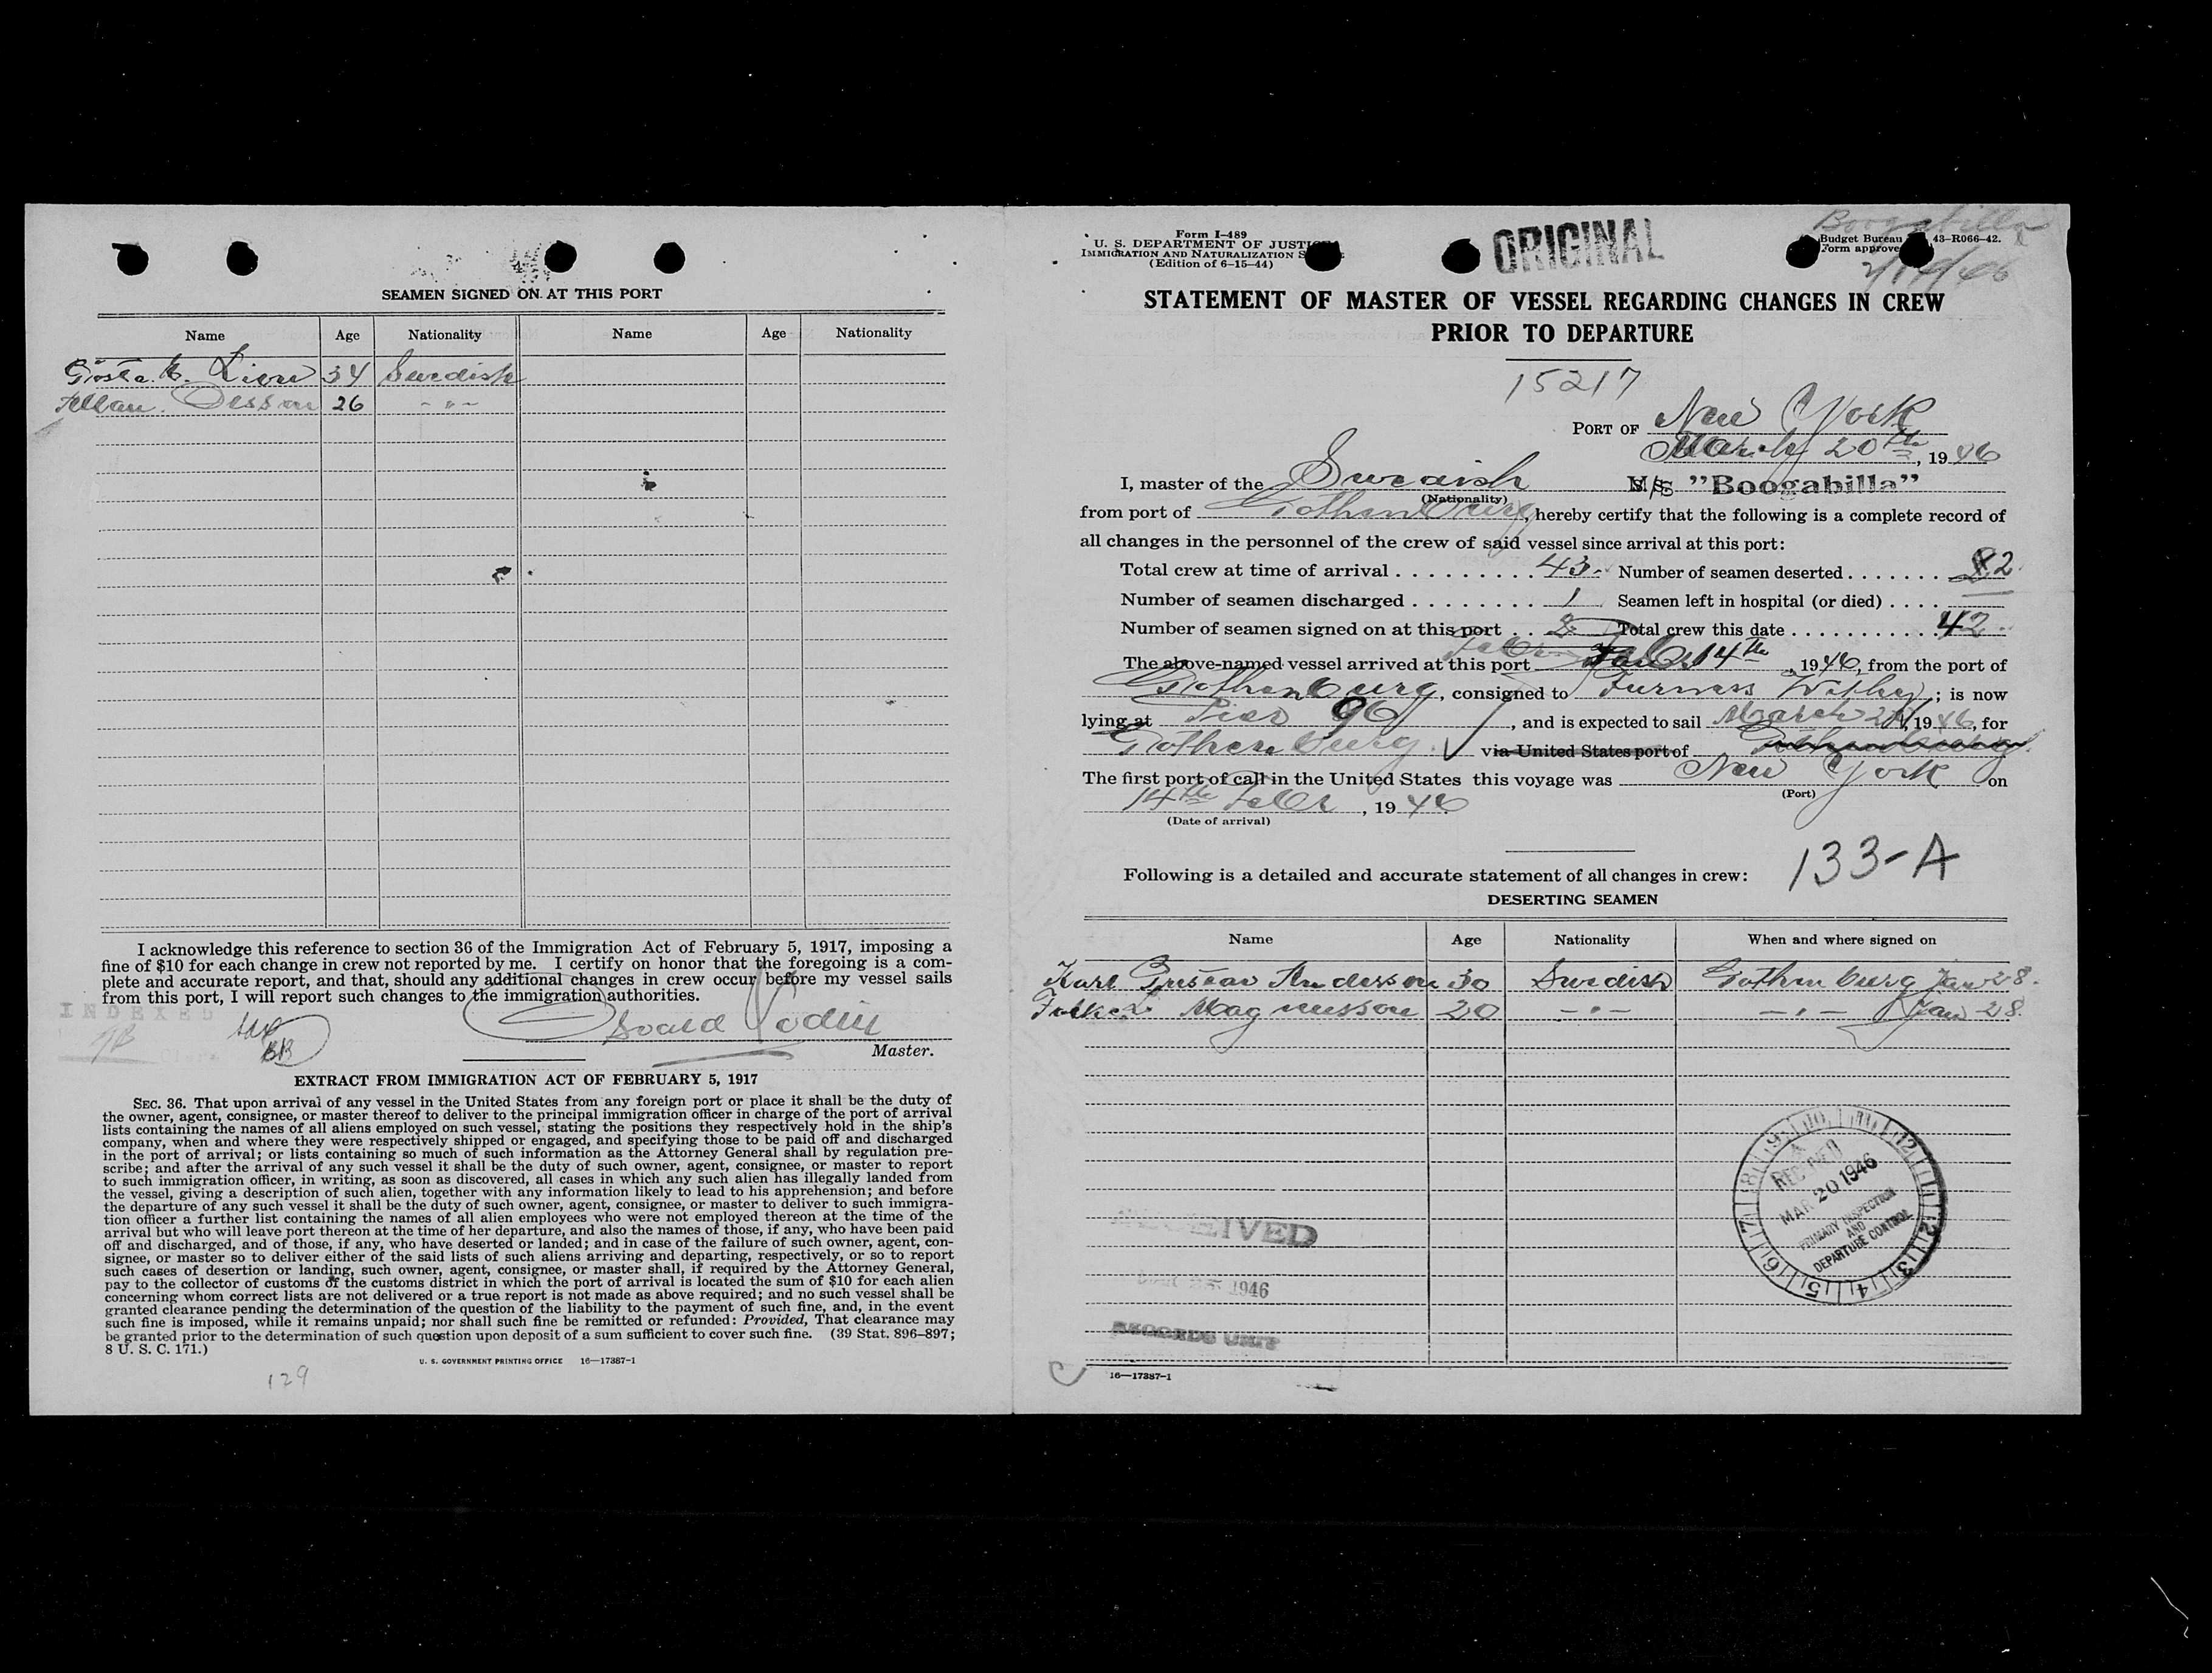 SEAMEN SIGNED ON AT THIS PORT
Name Age Nationality Name Age Nationality
Gösta 34 Swedish
Allan 26 - " -
I acknowledge this reference to section 36 of the Immigration Act of February 5, 1917, imposing a
fine of $10 for each change in crew not reported by me. I certify on honor that the foregoing is a com-
plete and accurate report, and that, should any additional changes in crew occur before my vessel sails
from this port, I will report such changes to the immigration authorities.
INDEXED
Master.
EXTRACT FROM IMMIGRATION ACT OF FEBRUARY 5, 1917
SEC. 36. That upon arrival of any vessel in the United States from any foreign port or place it shall be the duty of
the owner, agent, consignee, or master thereof to deliver to the principal immigration officer in charge of the port of arrival
lists containing the names of all aliens employed on such vessel, stating the positions they respectively hold in the ship's
company, when and where they were respectively shipped or engaged, and specifying those to be paid off and discharged
in the port of arrival; or lists containing so much of such information as the Attorney General shall by regulation pre-
scribe; and after the arrival of any such vessel it shall be the duty of such owner, agent, consignee, or master to report
to such immigration officer, in writing, as soon as discovered, all cases in which any such alien has illegally landed from
the vessel, giving a description of such alien, together with any information likely to lead to his apprehension; and before
the departure of any such vessel it shall be the duty of such owner, agent, consignee, or master to deliver to such immigra-
tion officer a further list containing the names of all alien employees who were not employed thereon at the time of the
arrival but who will leave port thereon at the time of her departure, and also the names of those, if any, who have been paid
off and discharged, and of those, if any, who have deserted or landed; and in case of the failure of such owner, agent, con-
signee, or master so to deliver either of the said lists of such aliens arriving and departing, respectively, or so to report
such cases of desertion or landing, such owner, agent, consignee, or master shall, if required by the Attorney General,
pay to the collector of customs of the customs district in which the port of arrival is located the sum of $10 for each alien
concerning whom correct lists are not delivered or a true report is not made as above required; and no such vessel shall be
granted clearance pending the determination of the question of the liability to the payment of such fine, and, in the event
such fine is imposed, while it remains unpaid; nor shall such fine be remitted or refunded: Provided, That clearance may
be granted prior to the determination of such question upon deposit of a sum sufficient to cover such fine. (39 Stat. 896–897;
8 U. S. C. 171.)
U. S. GOVERNMENT PRINTING OFFICE 16—17387-1
129
Form I-489
U. S. DEPARTMENT OF JUSTICE
IMMIGRATION AND NATURALIZATION
(Edition of 6-15-44)
ORIGINAL
Boogabilla
Budget Bureau 43-R066-42.
Form approve
2/14/46
STATEMENT OF MASTER OF VESSEL REGARDING CHANGES IN CREW
PRIOR TO DEPARTURE
15217
PORT OF New York
March 20th, 1946
I, master of the Swedish M/S "Boogabilla"
(Nationality)
from port of Gothenburg, hereby certify that the following is a complete record of
all changes in the personnel of the crew of said vessel since arrival at this port:
Total crew at time of arrival 43 Number of seamen deserted 2
Number of seamen discharged 1 Seamen left in hospital (or died)
Number of seamen signed on at this port 2 Total crew this date 42
The above-named vessel arrived at this port 14th, 1946, from the port of
Gothenburg, consigned to Furness Withy; is now
lying at Pier 96, and is expected to sail March 21, 1946, for
Gothenburg. via United States port of
The first port of call in the United States this voyage was New York on
(Port)
14th Febr, 1946
(Date of arrival)
133-A
Following is a detailed and accurate statement of all changes in crew:
DESERTING SEAMEN
Name Age Nationality When and where signed on
Karl Gustav Andersson 30 Swedish Gothenburg Jan 28.
Folke Magnusson 20 - " - - " - Jan 28.
RECEIVED
MAR 20 1946
PRIMARY INSPECTION
AND
DEPARTURE CONTROL
RECEIVED
1946
RECORDS UNIT
16—17387-1